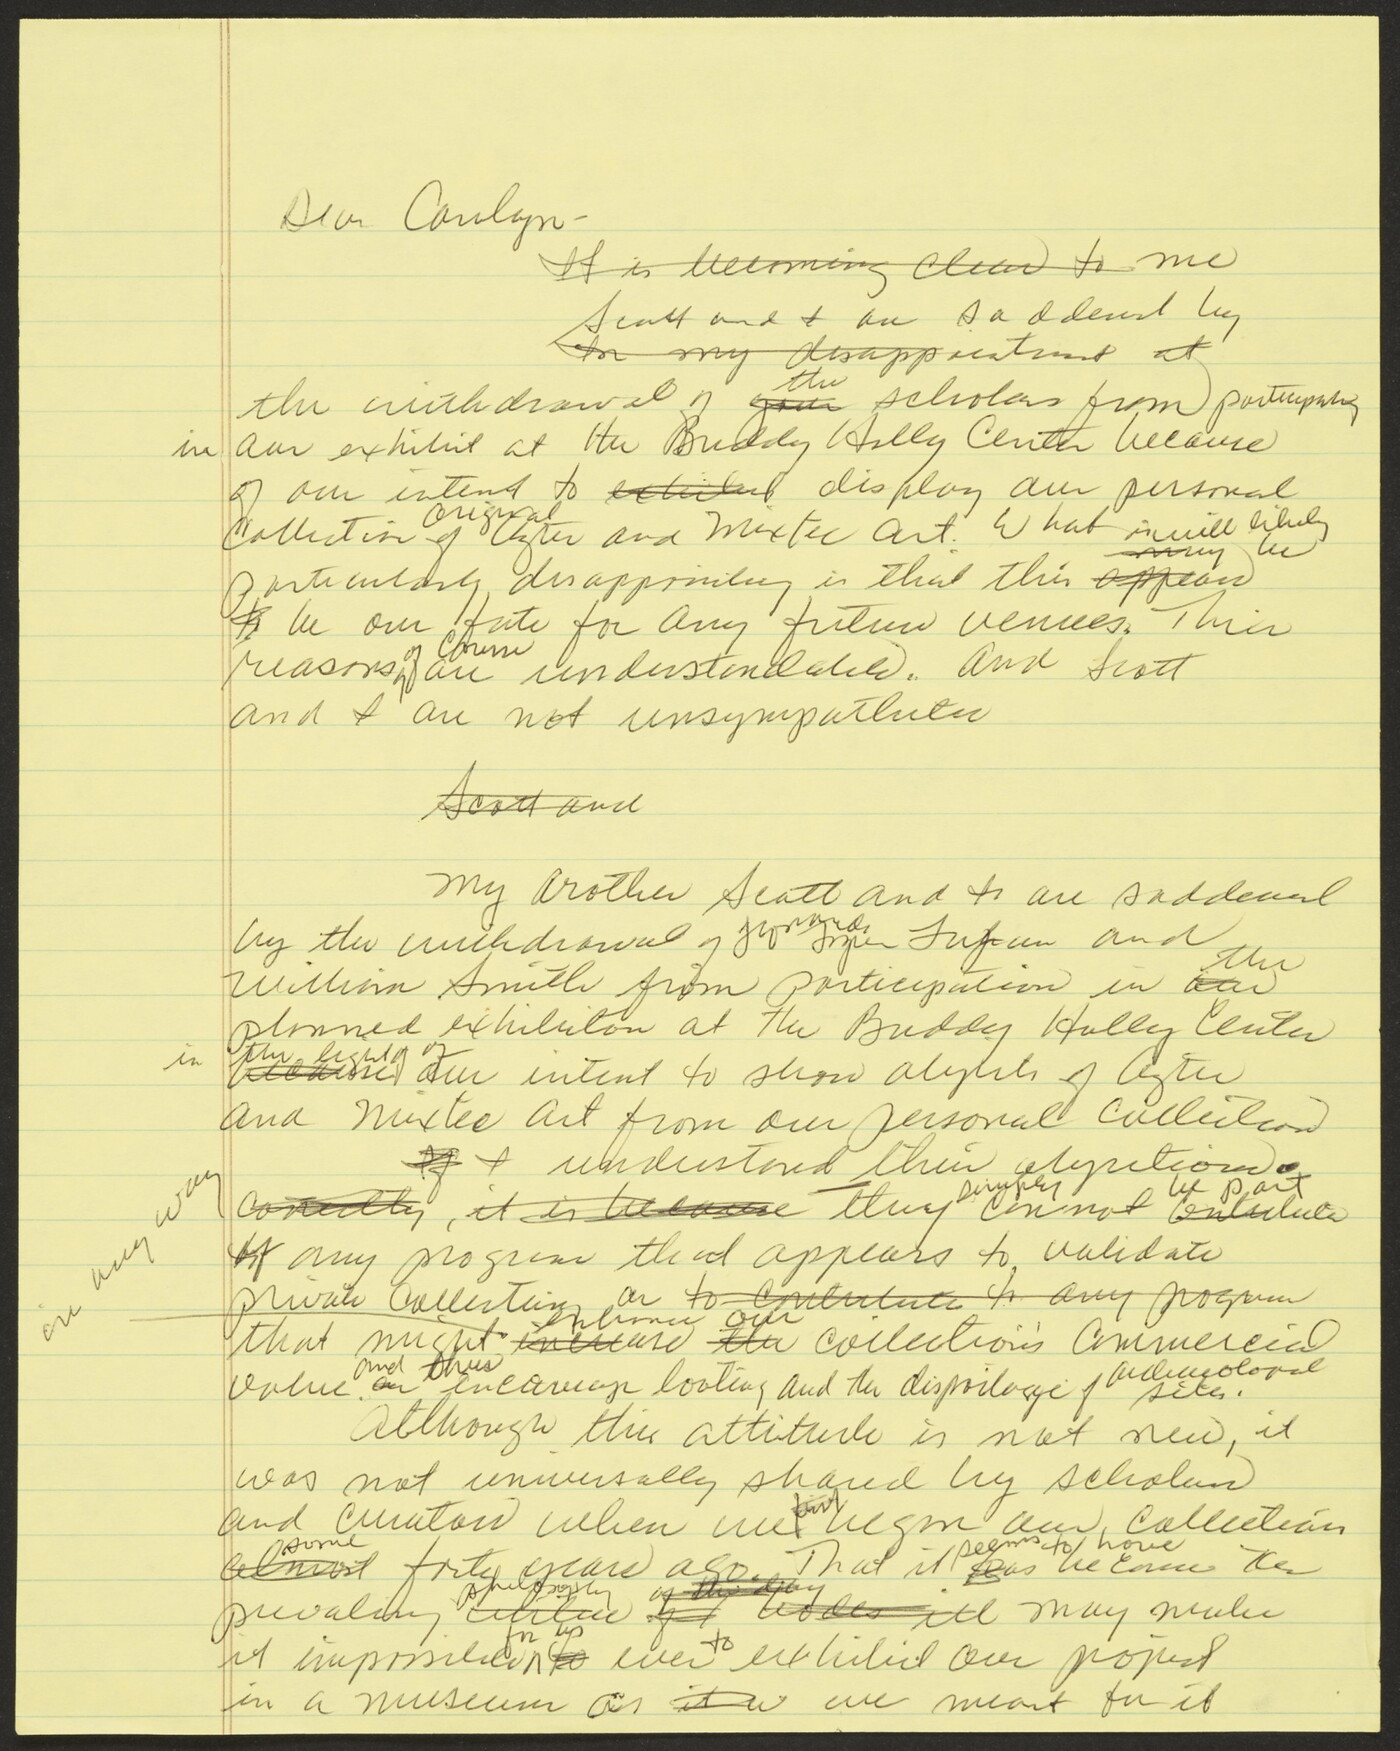 Dear Carolyn-
It is becoming clear to me
Scott and I are saddened by
to my disappointment at
the withdrawal of your the scholars from participating
in our exhibit at the Buddy Holly Center because
of our intent to exhibit display our personal
collection of original Aztec and Mixtec Art. What
particularly disappointing is that this appears may be
to be our fate for any future venues. Their
reasons, of course are understandable. And Scott
and I are not unsympathetic
Scott and
My brother Scott and I are saddened
by the withdrawal of and
William Smith from participation in our the
planned exhibition at the Buddy Holly Center
in the light of because of our intent to show objects of Aztec
and Mixtec Art from our personal collection
If I understand their objections
correctly, it is because they simply cannot be part contribute
of any program that appears to validate
private collecting in any way or to contribute to any program
that might enhance increase our the collection's commercial
value and thus or encourage looting and the of archaeological sites.
Although this attitude is not new, it
was not universally shared by scholars
and curators when we first began our collection
some almost forty years ago. That it seems to have has become the
prevailing philosophy of the day may make
it impossible for us to ever to exhibit our project
in a museum as it we meant for it